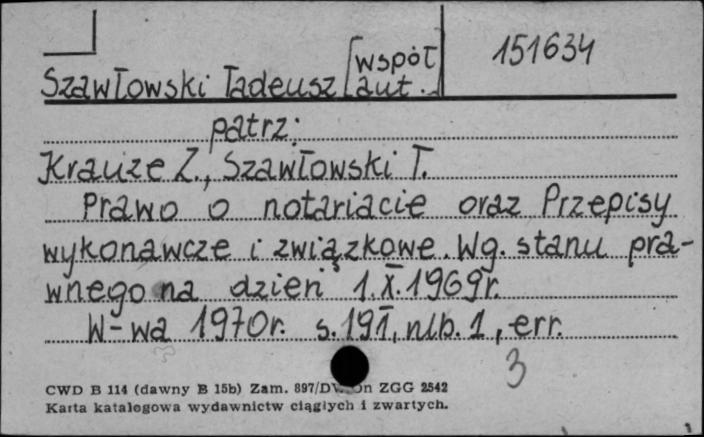 151634
Szawłowski Tadeusz [współ
aut.]
patrz:
Krauze Z., Szawłowski T.
Prawo o notariacie oraz Przepisy
wykonawcze i związkowe. Wg. stanu pra-
wnego na dzień 1.X.1969r.
W-wa 1970r. s.191, nlb.1, err.
3
CWD B 114 (dawny B 15b) Zam. 897/DV. on ZGG 2542
Karta katalogowa wydawnictw ciągłych i zwartych.